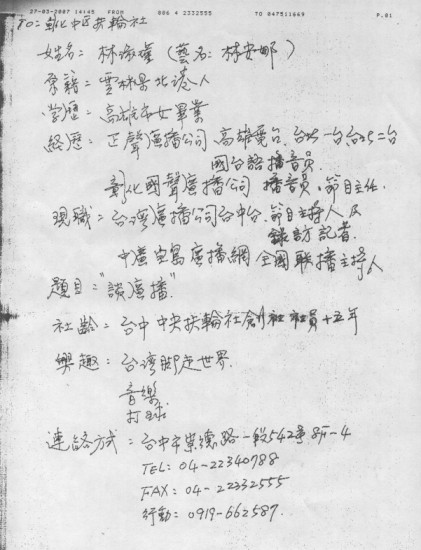 27-03-2007 14:45 FROM 886 4 2332555 TO 047511869 P.01
TO:彰化中区扶輪社
姓名: 林淑瓊 (藝名: 林安娜)
祭籍: 雲林県北港人
学歴: 高雄市女畢業
経歴: 正聲廣播公司、高雄電台、台北一台台北二台
國台語播音員
彰化國聲廣播公司 播音員、節目主任
現職: 台湾廣播公司台中台、節目主持人及
錄訪記者.
中廣宝島廣播網 全國联播主持人
題目: "談廣播"
社齡: 台中中央扶輪社創社社員十五年
樂趣: 台湾脚走世界
音樂
打球
連絡方式: 台中市崇德路一段542号8F-4
TEL: 04-22340788
FAX: 04-22332555
行動: 0919-662587.